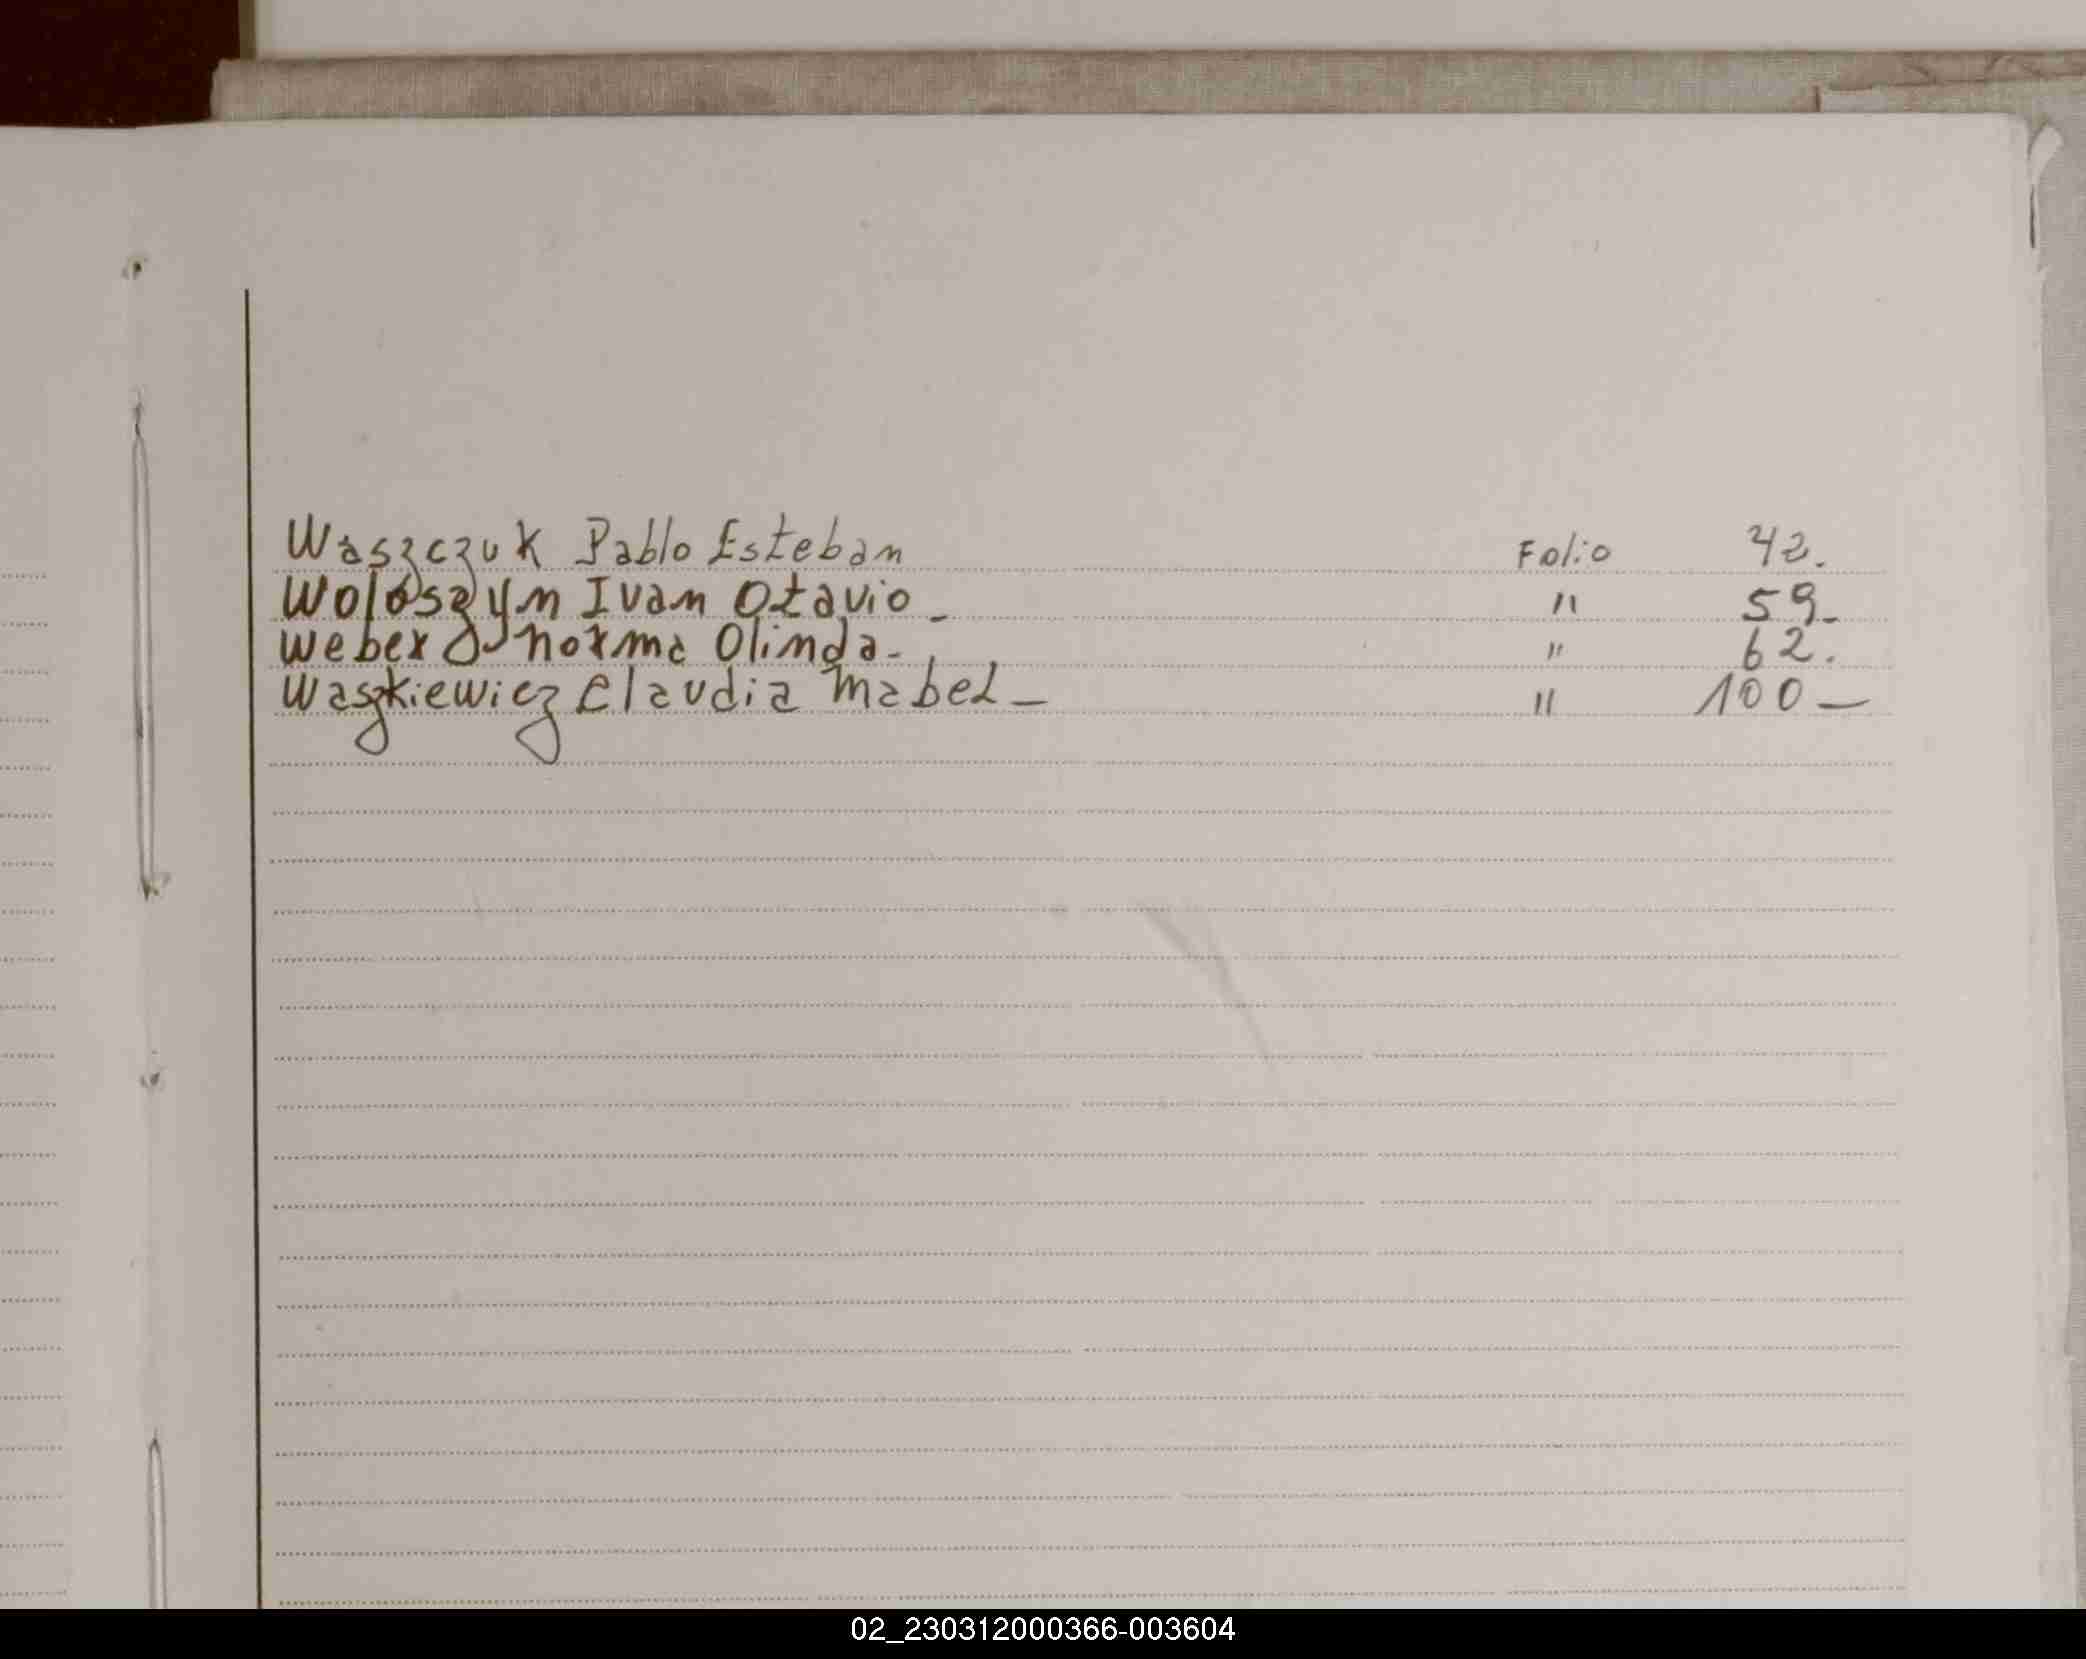 Waszczuk Pablo Esteban Folio 42.
Woloszyn Ivan Otavio - " 59-
Weber norma Olinda - " 62.
Waszkiewicz Claudia Mabel - " 100 -
02_230312000366-003604